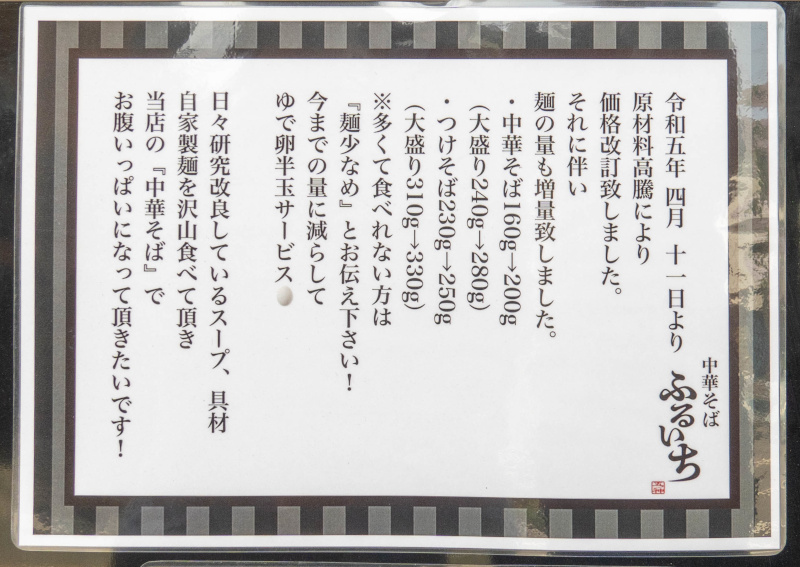 令和五年 四月 十一日より
原材料高騰により
価格改訂致しました。
それに伴い
麺の量も増量致しました。
・中華そば160g→200g
(大盛り240g→280g)
・つけそば230g→250g
(大盛り310g→330g)
※多くて食べれない方は
『麺少なめ』とお伝え下さい！
今までの量に減らして
ゆで卵半玉サービス
日々研究改良しているスープ、具材
自家製麺を沢山食べて頂き
当店の『中華そば』で
お腹いっぱいになって頂きたいです！
中華そば
ふるいち